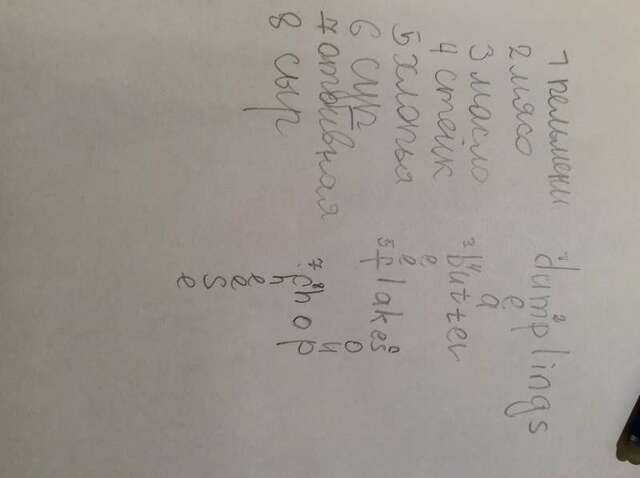 1 пельмени
2 мясо
3 масло
4 стейк
5 хлопья
6 суп
7 отбивная
8 сыр
1 dumplings
2 meat
3 butter
4 beef
5 flakes
6 soup
7 chop
8 cheese